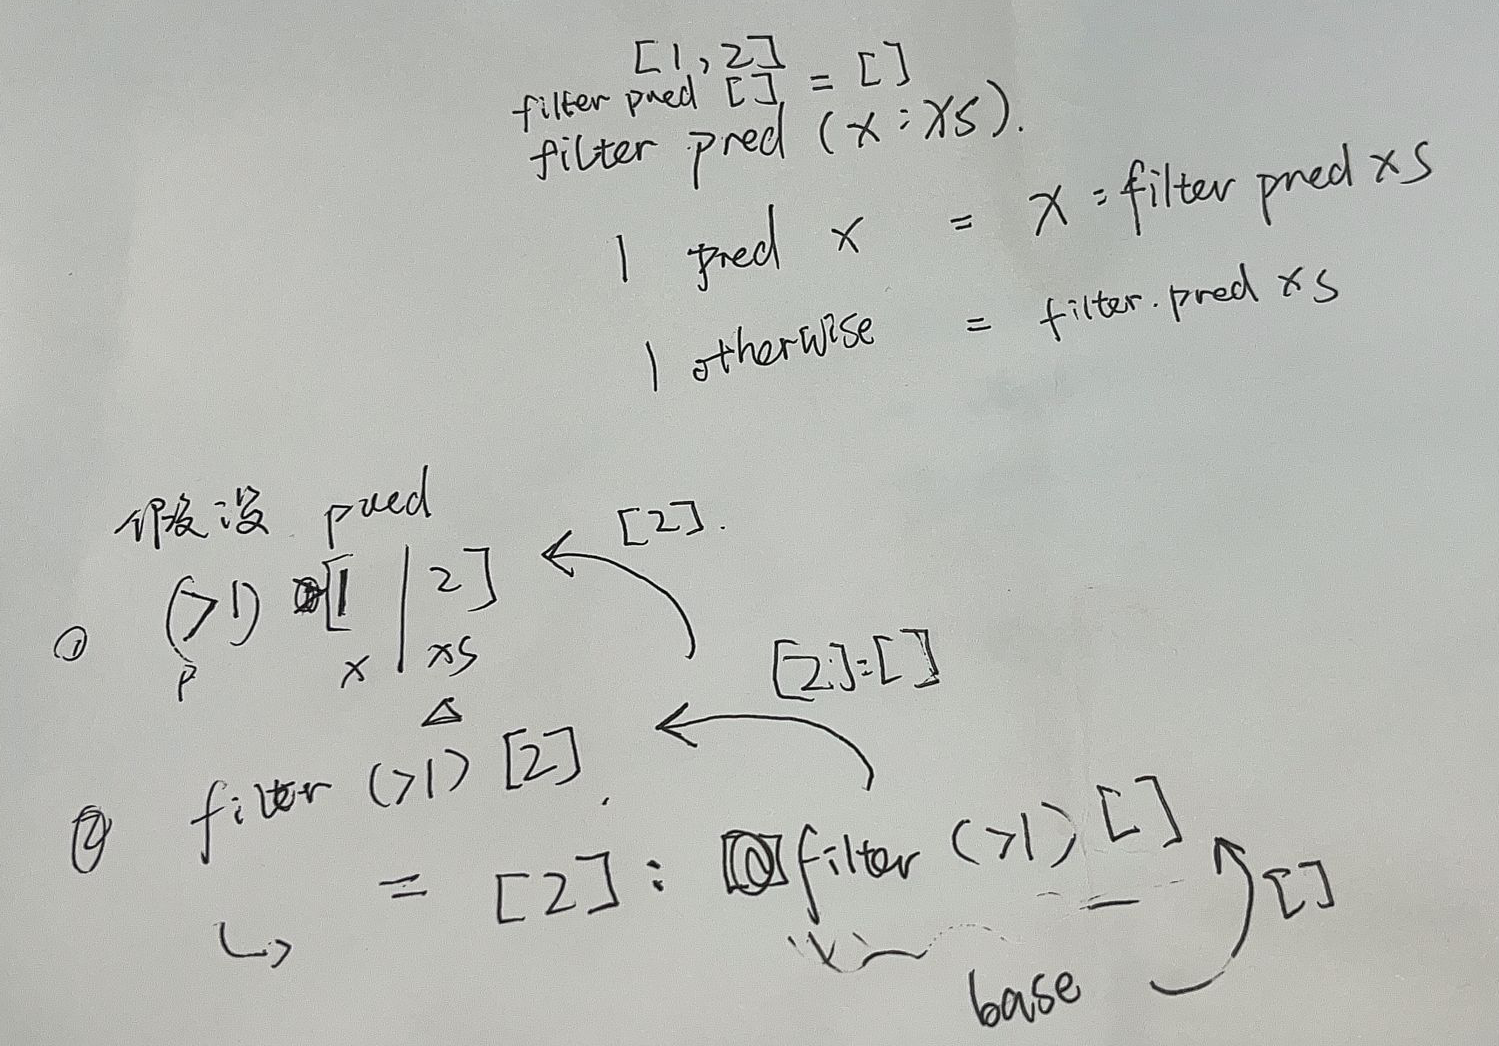 [1,2]
filter pred [] = []
filter pred (x:xs).
| pred x = x : filter pred xs
| otherwise = filter.pred xs
假设 pred
[2].
① (>1) [1 | 2]
p x xs
[2]:[]
② filter (>1) [2].
= [2] : filter (>1) []
[]
base